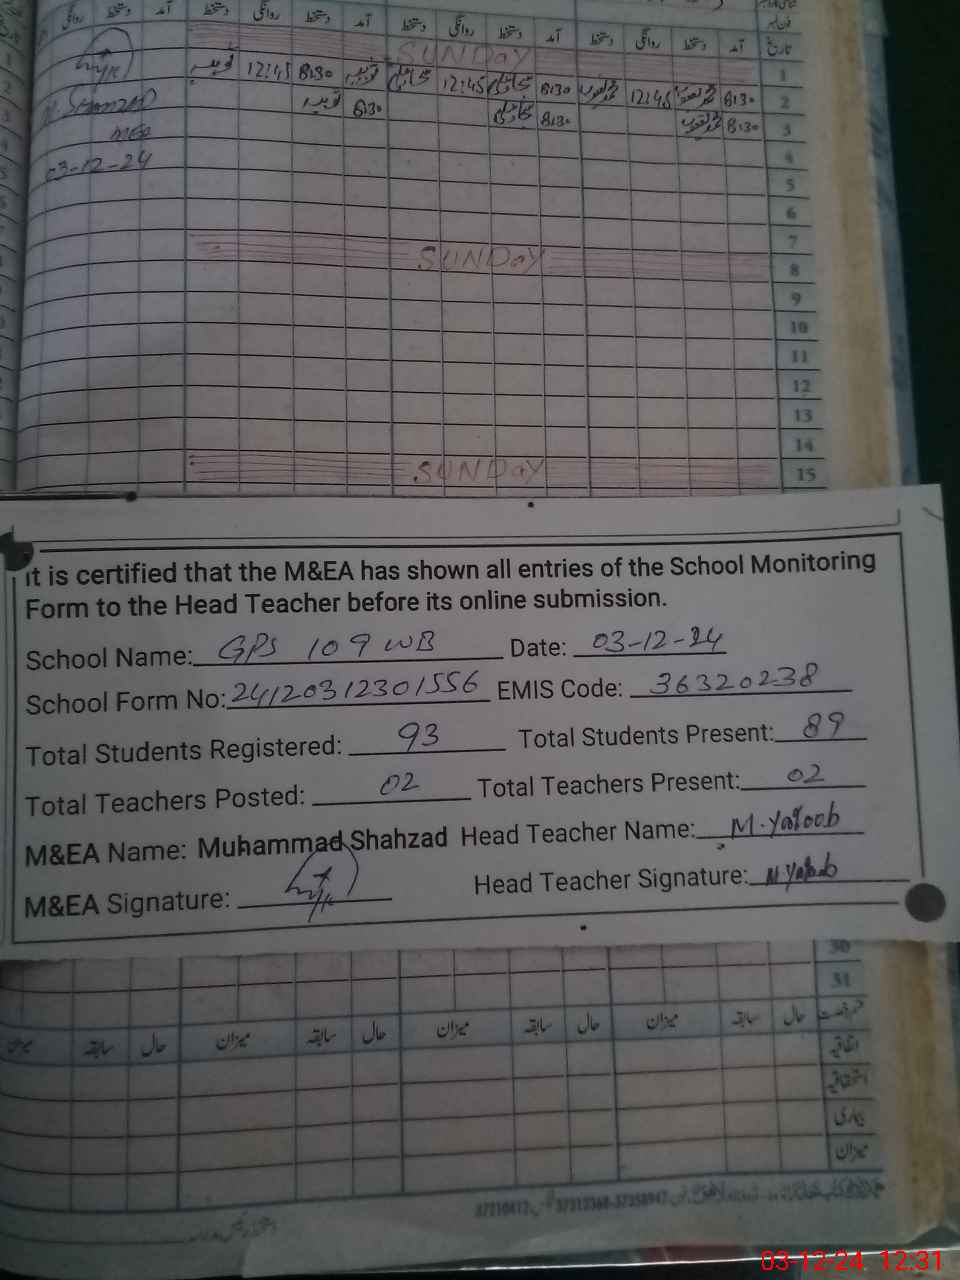 آمد دستخط روانگی دستخط آمد دستخط روانگی دستخط آمد دستخط روانگی دستخط آمد دستخط روانگی
تاریخ
SUNDAY
1
8:30 12:45 8:30 12:45 8:30 12:45
2
8:30 8:30 8:30
3
SHAHZAD
MEA
03-12-24
4
5
6
7
SUNDAY
8
9
10
11
12
13
14
SUNDAY
15
It is certified that the M&EA has shown all entries of the School Monitoring
Form to the Head Teacher before its online submission.
School Name: GPS 109 WB Date: 03-12-24
School Form No: 24120312301556 EMIS Code: 36320238
Total Students Registered: 93 Total Students Present: 89
Total Teachers Posted: 02 Total Teachers Present: 02
M&EA Name: Muhammad Shahzad Head Teacher Name: M.Yaqoob
M&EA Signature: Head Teacher Signature: M Yaqoob
30
31
حال سابقہ میزان حال سابقہ میزان حال سابقہ میزان حال سابقہ
اتفاقیہ
استحقاقیہ
بیماری
میزان
03-12-24 12:31